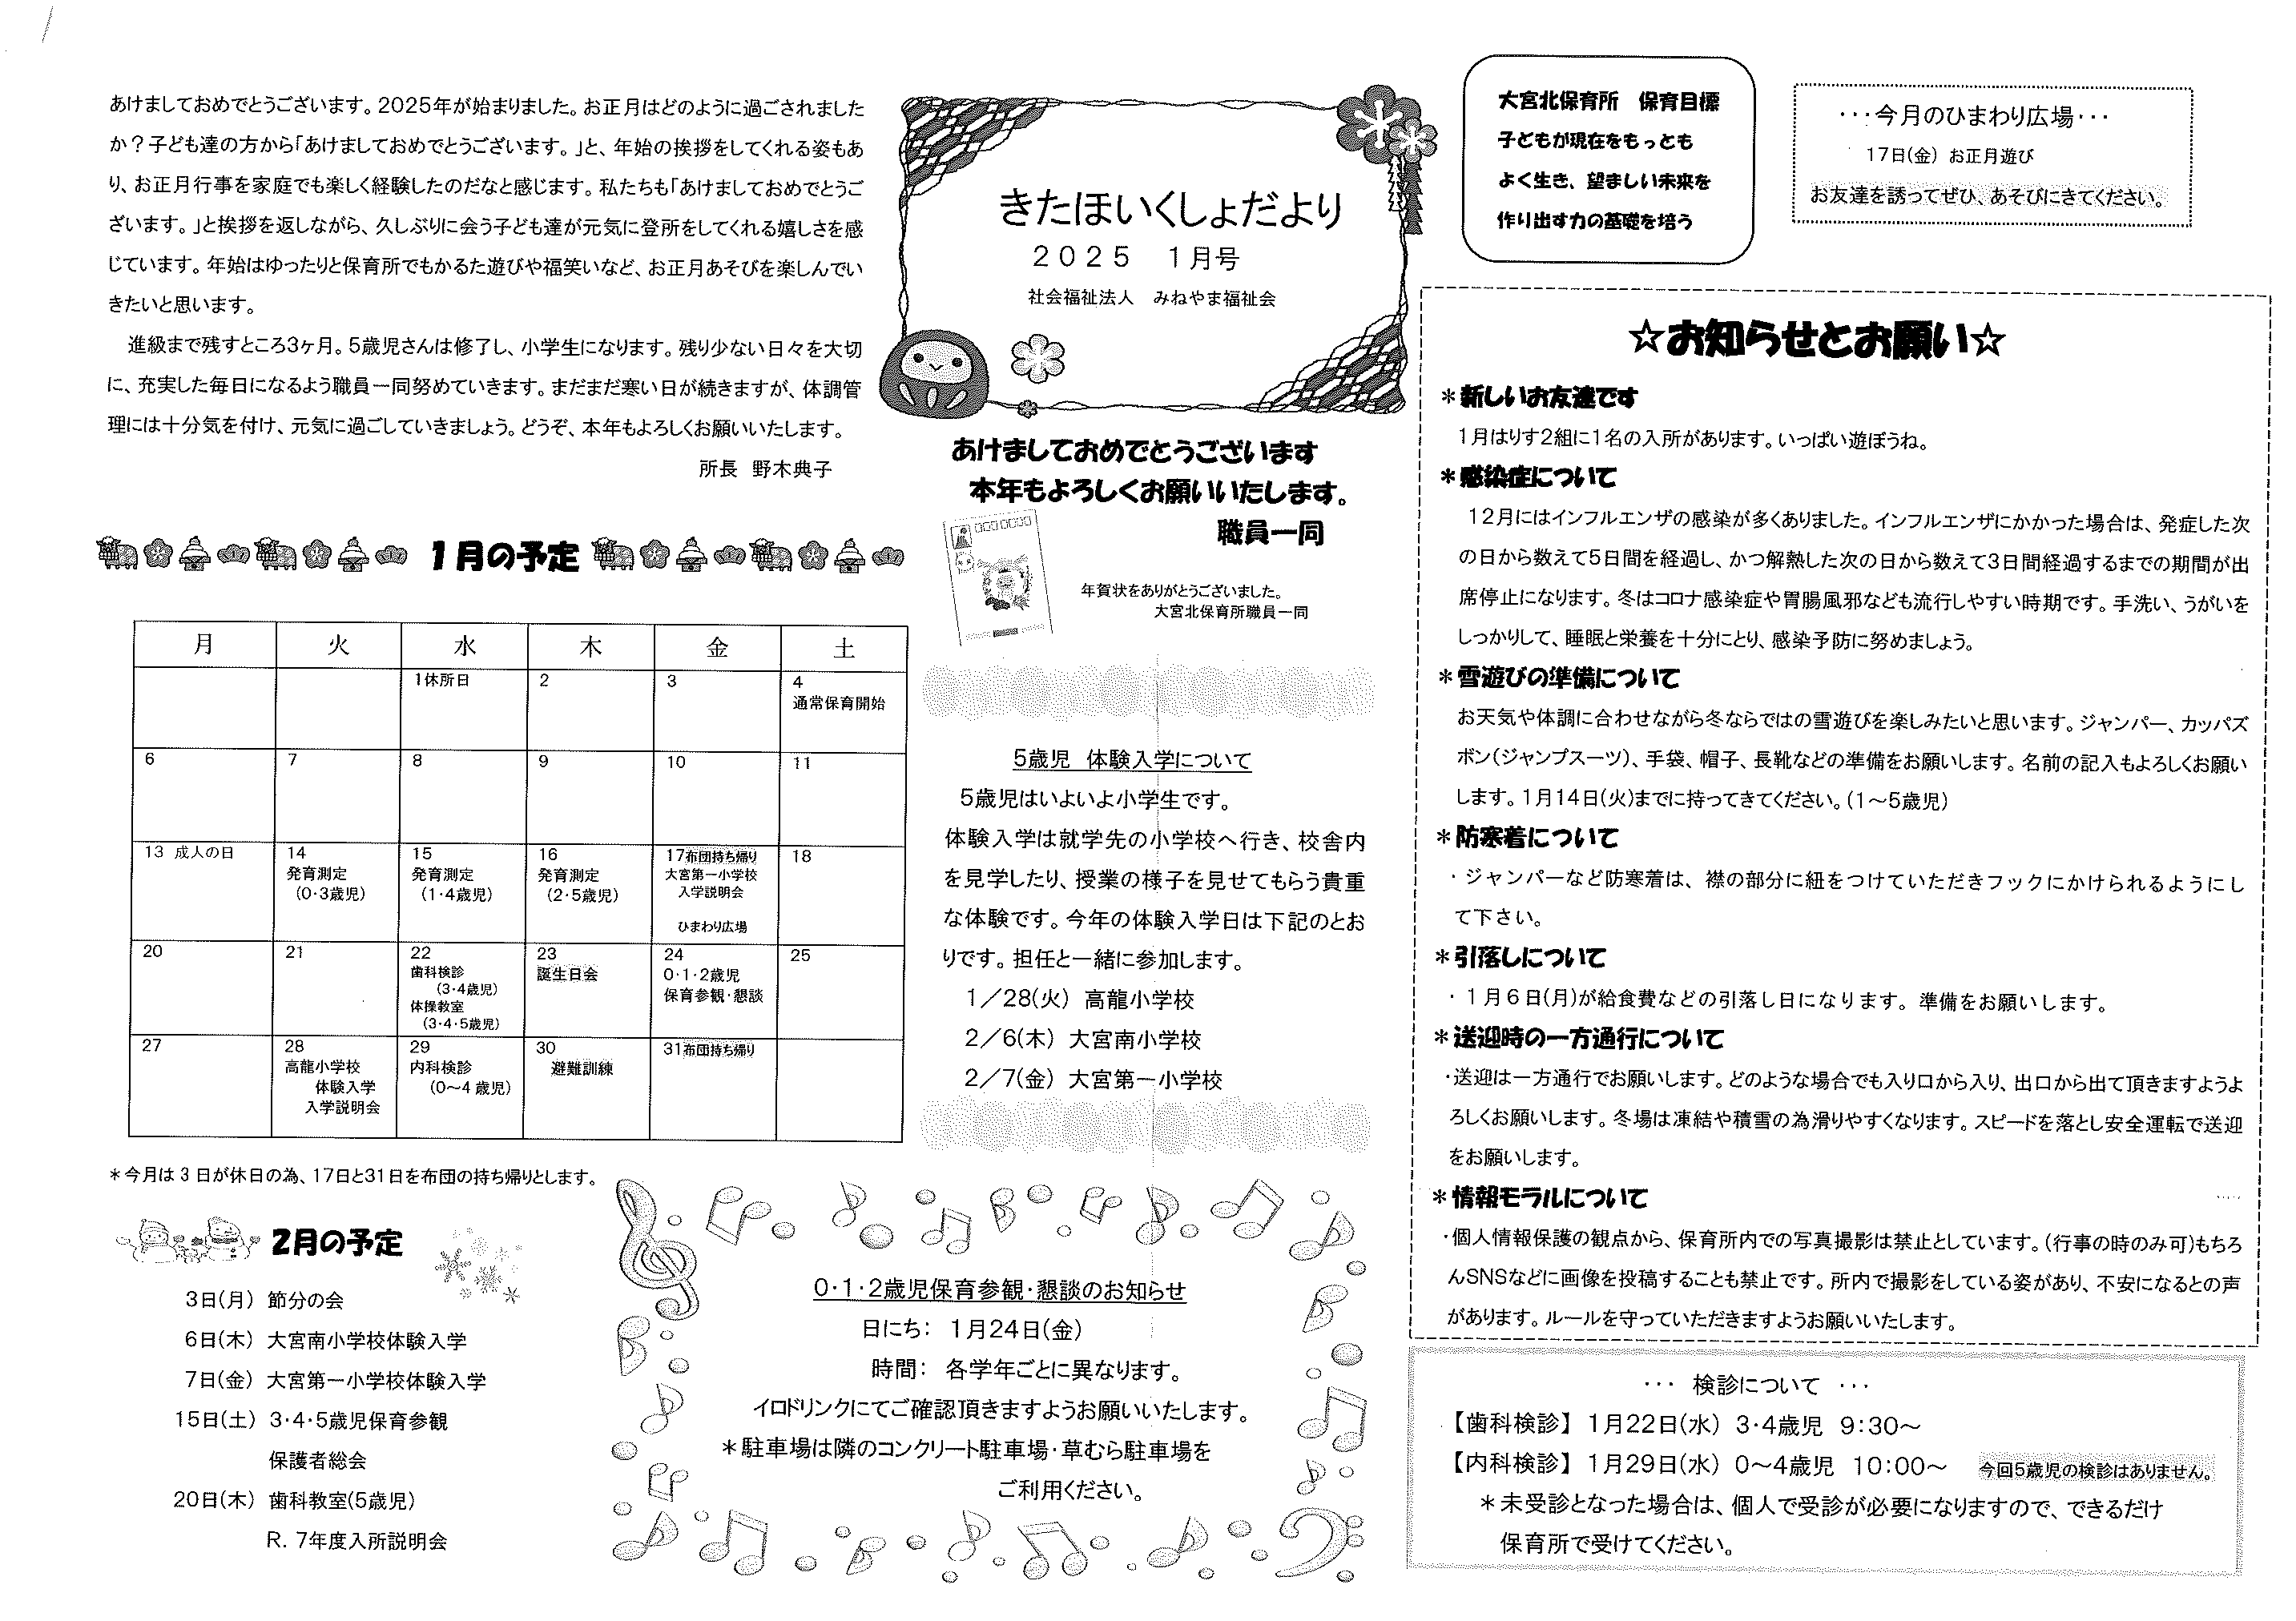 あけましておめでとうございます。2025年が始まりました。お正月はどのように過ごされました
か？子ども達の方から「あけましておめでとうございます。」と、年始の挨拶をしてくれる姿もあ
り、お正月行事を家庭でも楽しく経験したのだなと感じます。私たちも「あけましておめでとうご
ざいます。」と挨拶を返しながら、久しぶりに会う子ども達が元気に登所をしてくれる嬉しさを感
じています。年始はゆったりと保育所でもかるた遊びや福笑いなど、お正月あそびを楽しんでい
きたいと思います。
進級まで残すところ3ヶ月。5歳児さんは修了し、小学生になります。残り少ない日々を大切
に、充実した毎日になるよう職員一同努めていきます。まだまだ寒い日が続きますが、体調管
理には十分気を付け、元気に過ごしていきましょう。どうぞ、本年もよろしくお願いいたします。
所長 野木典子
1月の予定
月 火 水 木 金 土
1休所日 2 3 4
通常保育開始
6 7 8 9 10 11
13 成人の日
14
発育測定
(0･3歳児)
15
発育測定
(1･4歳児)
16
発育測定
(2･5歳児)
17布団持ち帰り
大宮第一小学校
入学説明会
ひまわり広場
18
20 21
22
歯科検診
(3･4歳児)
体操教室
(3･4･5歳児)
23
誕生日会
24
0･1･2歳児
保育参観･懇談
25
27
28
高龍小学校
体験入学
入学説明会
29
内科検診
(0～4 歳児)
30
避難訓練
31布団持ち帰り
＊今月は 3 日が休日の為、17日と31日を布団の持ち帰りとします。
2月の予定
3日(月) 節分の会
6日(木) 大宮南小学校体験入学
7日(金) 大宮第一小学校体験入学
15日(土) 3･4･5歳児保育参観
保護者総会
20日(木) 歯科教室(5歳児)
R. 7年度入所説明会
きたほいくしょだより
２０２５　１月号
社会福祉法人　みねやま福祉会
あけましておめでとうございます
本年もよろしくお願いいたします。
職員一同
年賀状をありがとうございました。
大宮北保育所職員一同
5歳児 体験入学について
5歳児はいよいよ小学生です。
体験入学は就学先の小学校へ行き、校舎内
を見学したり、授業の様子を見せてもらう貴重
な体験です。今年の体験入学日は下記のとお
りです。担任と一緒に参加します。
1／28(火) 高龍小学校
2／6(木) 大宮南小学校
2／7(金) 大宮第一小学校
0･1･2歳児保育参観･懇談のお知らせ
日にち： 1月24日(金)
時間： 各学年ごとに異なります。
イロドリンクにてご確認頂きますようお願いいたします。
＊駐車場は隣のコンクリート駐車場･草むら駐車場を
ご利用ください。
大宮北保育所　保育目標
子どもが現在をもっとも
よく生き、望ましい未来を
作り出す力の基礎を培う
･･･今月のひまわり広場･･･
17日(金) お正月遊び
お友達を誘ってぜひ、あそびにきてください。
☆お知らせとお願い☆
＊新しいお友達です
1月はりす2組に1名の入所があります。いっぱい遊ぼうね。
＊感染症について
12月にはインフルエンザの感染が多くありました。インフルエンザにかかった場合は、発症した次
の日から数えて5日間を経過し、かつ解熱した次の日から数えて3日間経過するまでの期間が出
席停止になります。冬はコロナ感染症や胃腸風邪なども流行しやすい時期です。手洗い、うがいを
しっかりして、睡眠と栄養を十分にとり、感染予防に努めましょう。
＊雪遊びの準備について
お天気や体調に合わせながら冬ならではの雪遊びを楽しみたいと思います。ジャンパー、カッパズ
ボン(ジャンプスーツ)、手袋、帽子、長靴などの準備をお願いします。名前の記入もよろしくお願い
します。1月14日(火)までに持ってきてください。(1～5歳児)
＊防寒着について
･ジャンパーなど防寒着は、襟の部分に紐をつけていただきフックにかけられるようにし
て下さい。
＊引落しについて
･１月６日(月)が給食費などの引落し日になります。準備をお願いします。
＊送迎時の一方通行について
･送迎は一方通行でお願いします。どのような場合でも入り口から入り、出口から出て頂きますようよ
ろしくお願いします。冬場は凍結や積雪の為滑りやすくなります。スピードを落とし安全運転で送迎
をお願いします。
＊情報モラルについて
･個人情報保護の観点から、保育所内での写真撮影は禁止としています。(行事の時のみ可)もちろ
んSNSなどに画像を投稿することも禁止です。所内で撮影をしている姿があり、不安になるとの声
があります。ルールを守っていただきますようお願いいたします。
･･･ 検診について ･･･
【歯科検診】 1月22日(水) 3･4歳児 9:30～
【内科検診】 1月29日(水) 0～4歳児 10:00～ 今回5歳児の検診はありません。
＊未受診となった場合は、個人で受診が必要になりますので、できるだけ
保育所で受けてください。